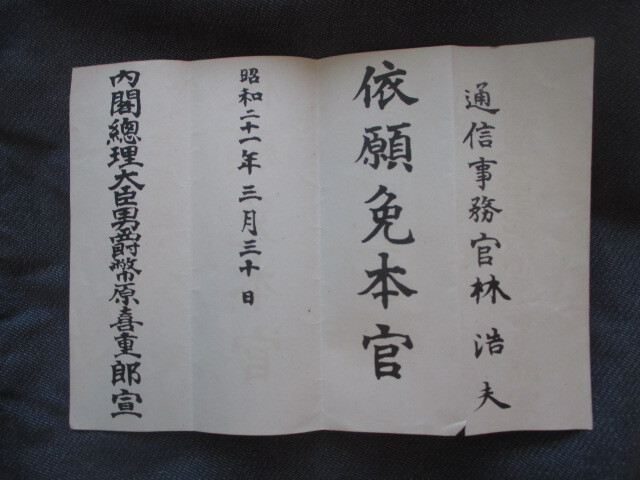 通信事務官林浩夫
依願免本官
昭和二十一年三月三十日
內閣總理大臣男爵幣原喜重郎宣